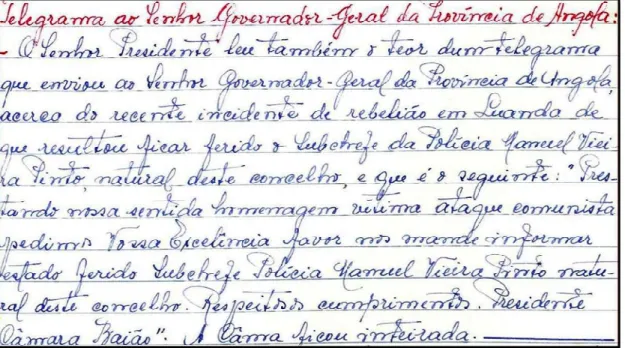 Telegrama ao Senhor Governador-Geral da Província de Angola:
- O Senhor Presidente leu também o teor dum telegrama
que enviou ao Senhor Governador-Geral da Província de Angola,
acerca do recente incidente de rebelião em Luanda de
que resultou ficar ferido o Subchefe da Polícia Manuel Viei-
ra Pinto, natural deste concelho, e que é o seguinte: "Pres-
tando nossa sentida homenagem vítima ataque comunista
pedimos Vossa Excelência favor nos mande informar
estado ferido Subchefe Polícia Manuel Vieira Pinto natu-
ral deste concelho. Respeitosos cumprimentos. Presidente
Câmara Baião". A Câma ficou inteirada.